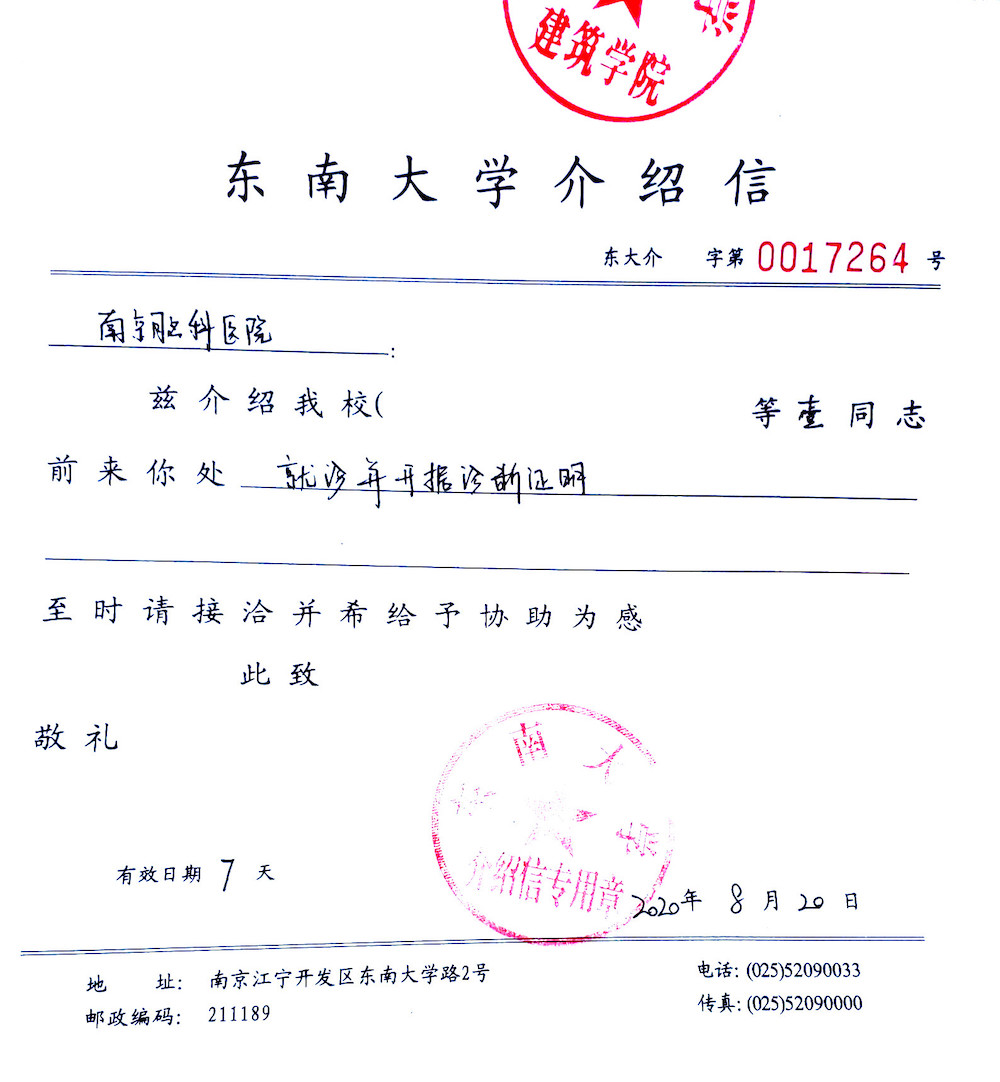 学
建筑学院
东南大学介绍信
东大介 字第 0017264 号
南京脑科医院:
兹介绍我校( 等壹同志
前来你处 就诊并开据诊断证明
至时请接洽并希给予协助为感
此致
敬礼
东南大学
介绍信专用章
有效日期 7 天
2020年 8 月 20 日
地 址: 南京江宁开发区东南大学路2号
电话: (025)52090033
邮政编码: 211189
传真: (025)52090000